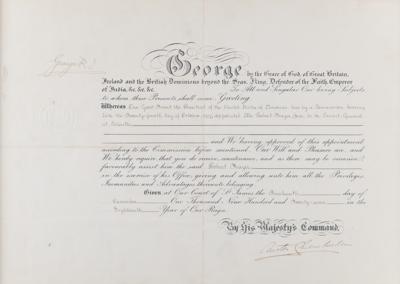 George R. I.
George
by the Grace of God, of Great Britain,
Ireland and the British Dominions beyond the Seas, King, Defender of the Faith, Emperor
of India, &c. &c. &c. To All and Singular Our loving Subjects
to whom these Presents shall come, Greeting
Whereas Our Good Friend the President of the United States of America has by a Commission bearing
date the day of October
at
and We having approved of this appointment
according to the Commission before mentioned Our Will and Pleasure are, and
We hereby require that you do receive, countenance, and as there may be occasion
favorably assist him the said
in the exercise of his Office, giving and allowing unto him all the Privileges
Immunities and Advantages thereunto belonging
Given at Our Court of St James the day of
One Thousand Nine Hundred and in the
Year of Our Reign.
By His Majesty's Command,
Austen Chamberlain